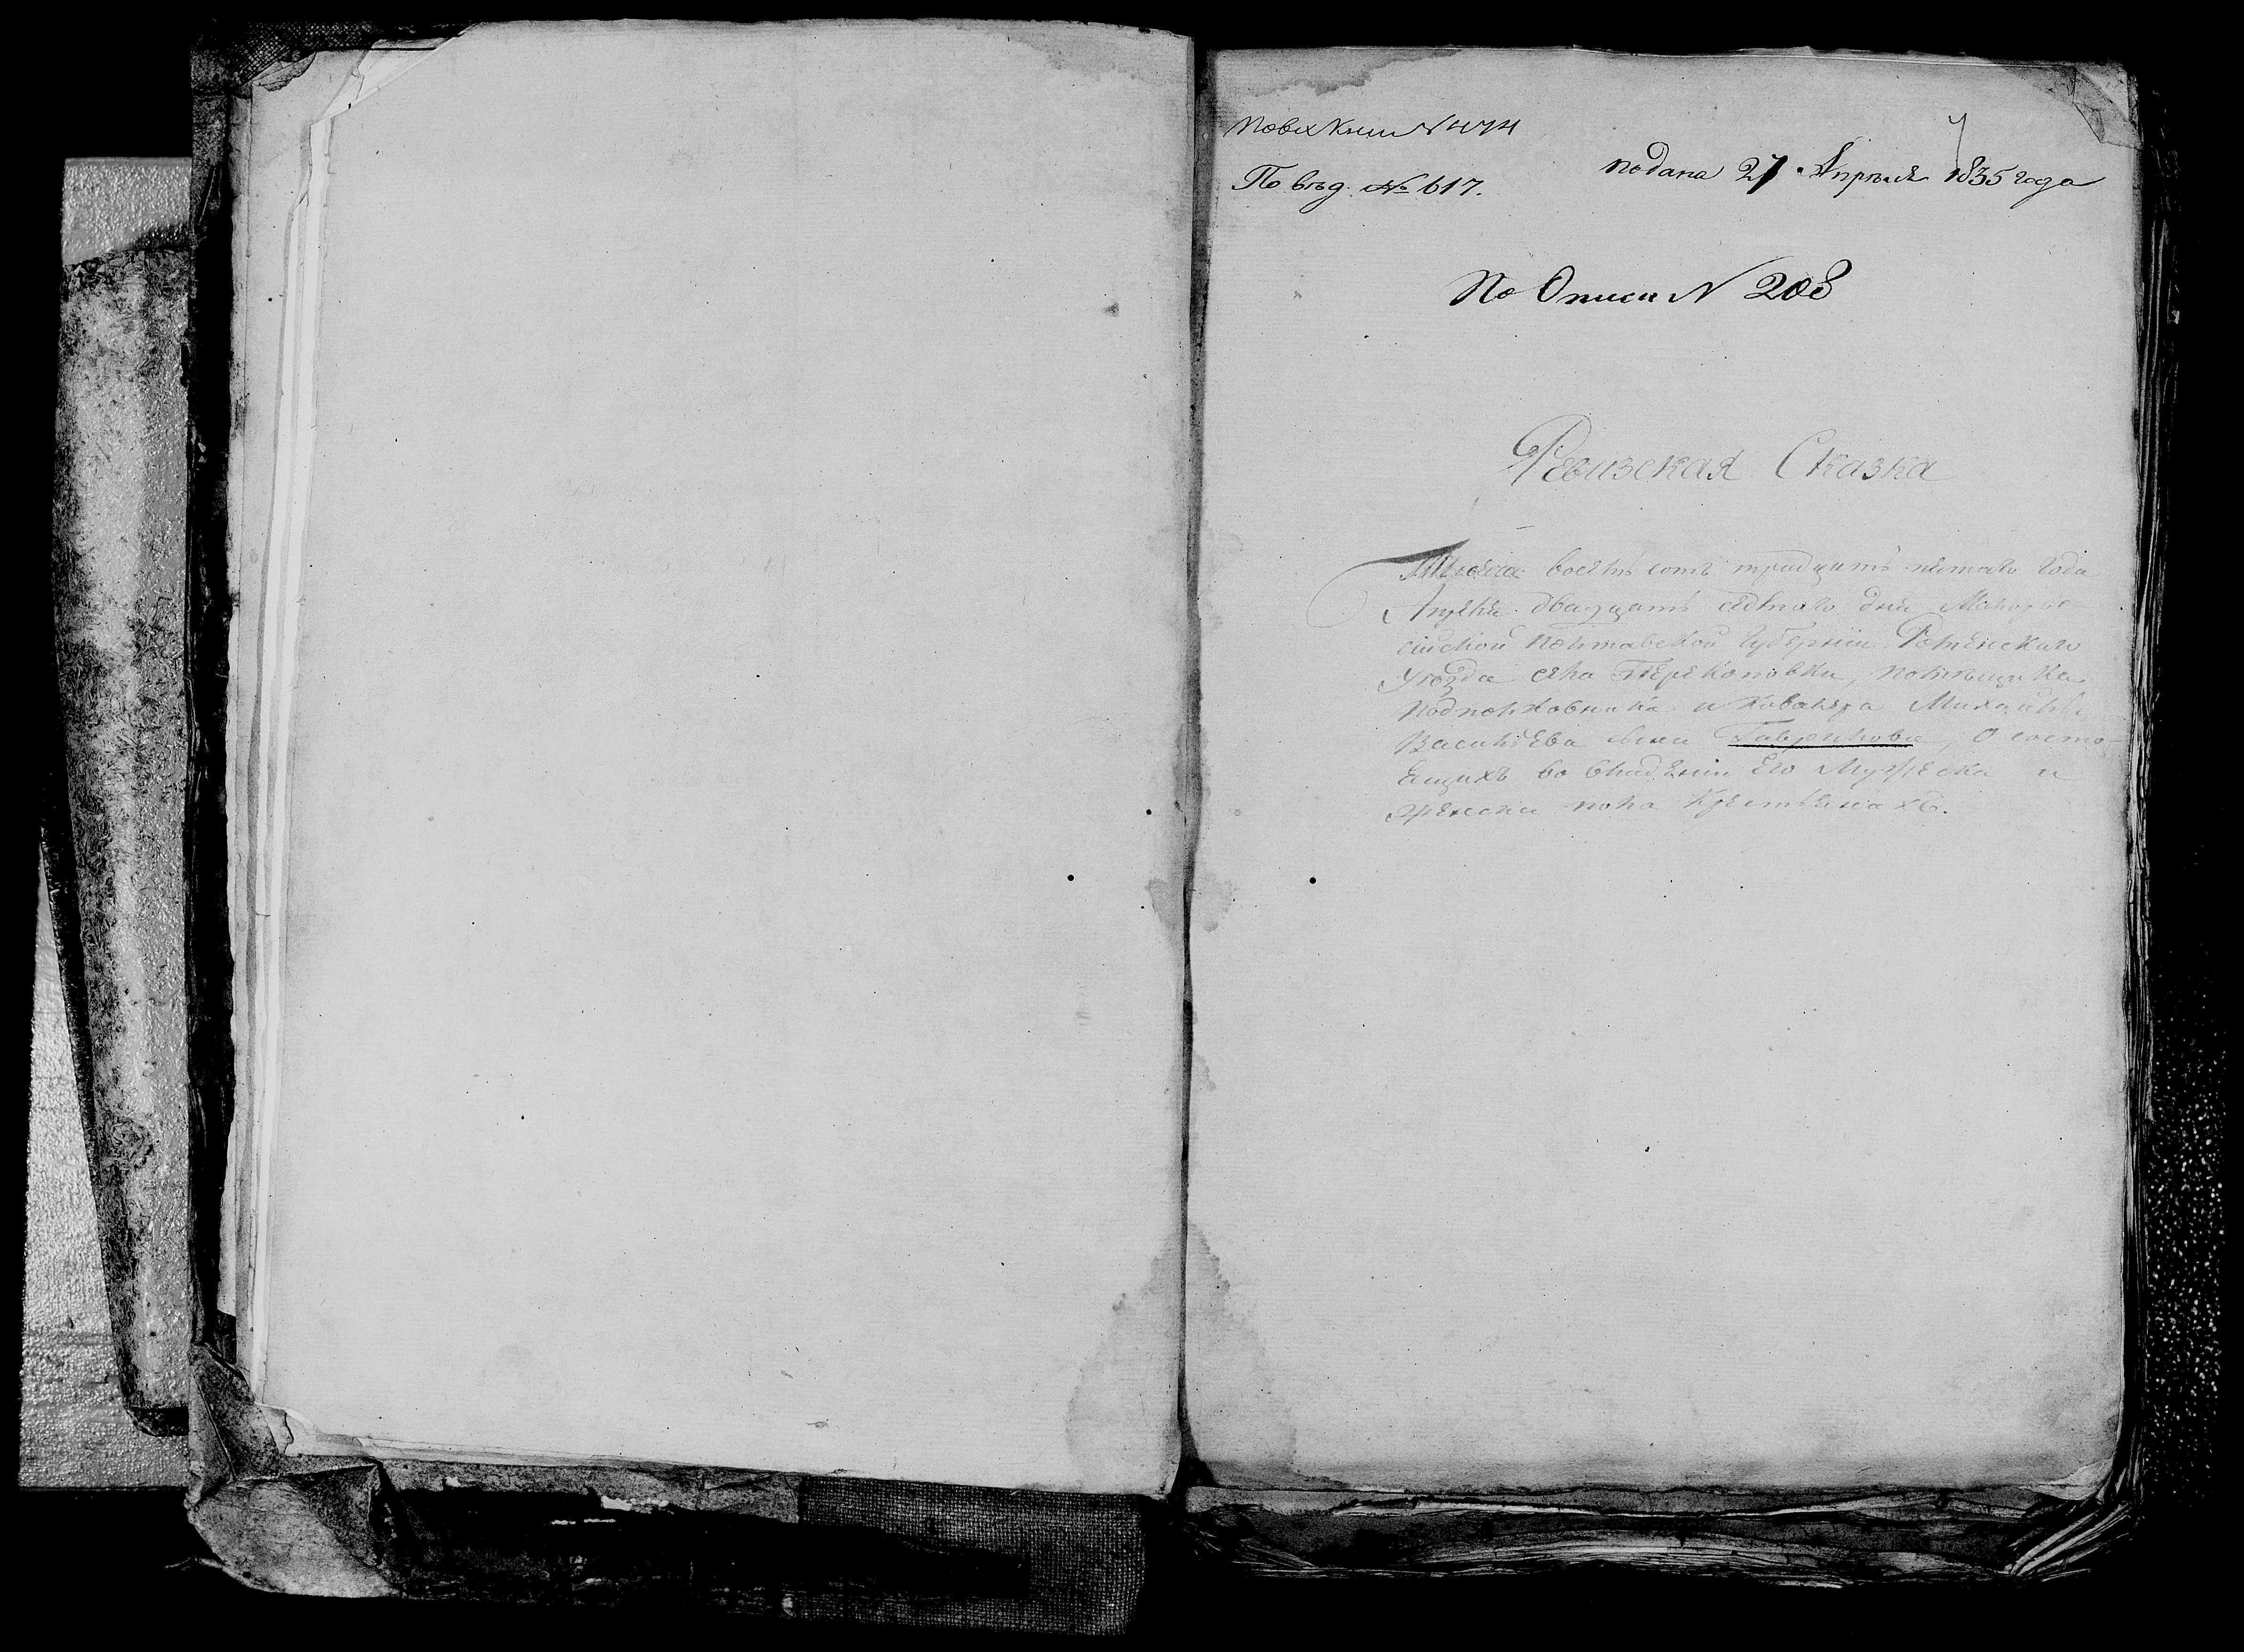 По вх Книги N 474
7
По вѣд. № 617.
подана 27 Апрѣля 1835 года
По Описи N 208
Ревизская Сказка
Тысяча восемь сотъ тридцать пятаго Года
Апреля двадцать седмого дня Малорос-
сійской Полтавской Губерніи Роменскаго
Уѣзда села Перекоповки, помѣщика
Подполковника и Кавалера Михайлы
Васильева сына Гаврилова, О состо-
ящихъ во владеніи Его Мужеска и
Женска пола Крестьянахъ.